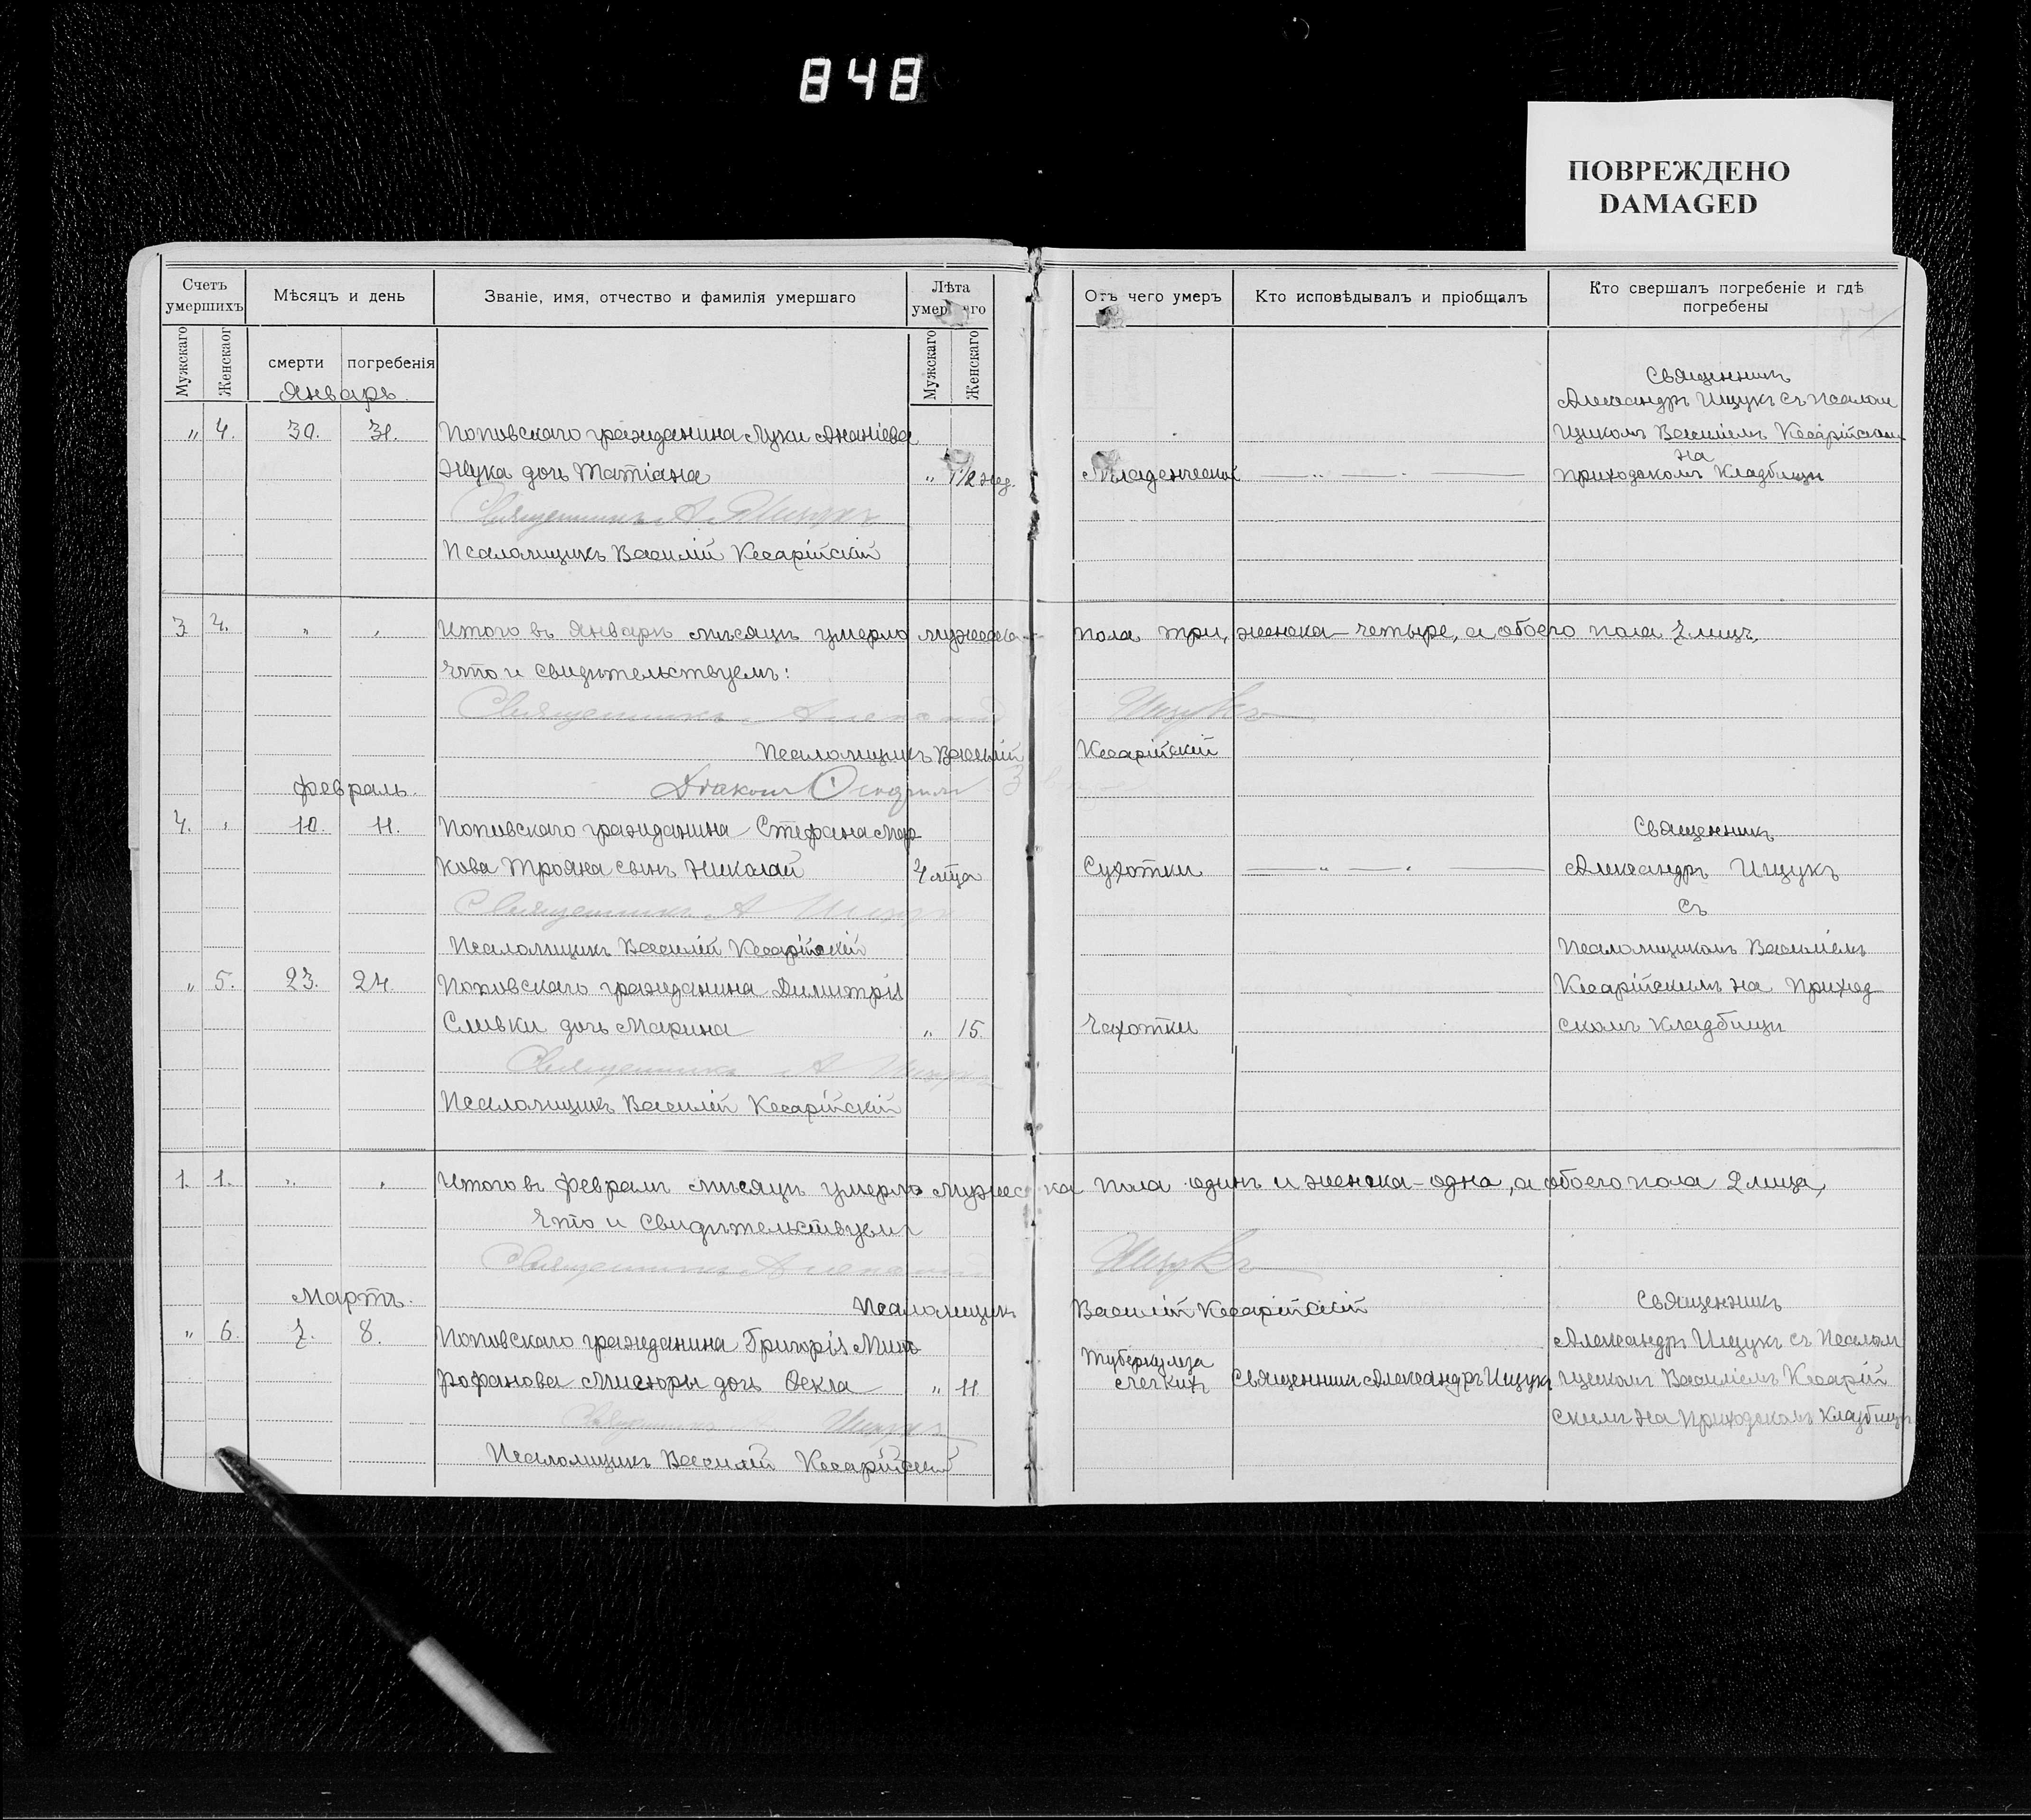 848
ПОВРЕЖДЕНО
DAMAGED
Счетъ умершихъ
Мѣсяцъ и день
Званіе, имя, отчество и фамилія умершаго
Лѣта умершаго
Отъ чего умеръ
Кто исповѣдывалъ и пріобщалъ
Кто свершалъ погребеніе и гдѣ погребены
Мужскаго
Женскаог
смерти
погребенія
Мужскаго
Женскаго
Январь.
Священникъ
Александръ Ищукъ съ псалом
" 4. 30. 31. Поповскаго гражданина Луки Ананіева
щикомъ Василіемъ Кесарійским
на
Жука дочь Татіана " 1/2 нед. Младенческой приходскомъ кладбищи
Священникъ А. Ищукъ
Псаломщикъ Василій Кесарійскій
3 4. " " Итого въ Январѣ мѣсяцѣ умерло мужеска пола три, женска - четыре, а обоего пола 7 лицъ,
что и свидѣтельствуемъ:
Священникъ Александръ Ищукъ
Псаломщикъ Василій Кесарійскій
Февраль.
Діаконъ
4. " 10. 11. Поповскаго гражданина Стефана Мар Священникъ
кова Трояна сынъ Николай 4 лѣта Сухотки Александръ Ищукъ
Священникъ А Ищукъ съ
Псаломщикъ Василій Кесарійскій Псаломщикомъ Василіемъ
" 5. 23. 24. Поповскаго гражданина Димитрія Кесарійскимъ на приход
Сливки дочь Марина " 15. Чахотки скомъ кладбищи
Священникъ А Ищукъ
Псаломщикъ Василій Кесарійскій
1. 1. " " Итого въ Февралѣ мѣсяцѣ умерло мужеска пола одинъ и женска - одна, а обоего пола 2 лица,
что и свидѣтельствуемъ
Священникъ Александръ Ищукъ
Мартъ. Псаломщикъ Василій Кесарійскій Священникъ
" 6. 7. 8. Поповскаго гражданина Григорія Мит Александръ Ищукъ съ Псалом
Туберкулеза
рофанова Мисюры дочь Ѳекла " 11 легкихъ Священникъ Александръ Ищукъ щикомъ Василіемъ Кесарій
Священникъ А. Ищукъ скимъ на приходскомъ кладбищи
Псаломщикъ Василій Кесарійскій